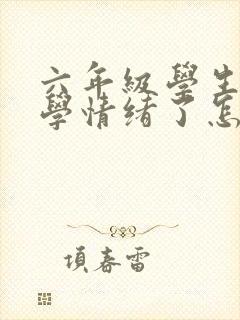 六年級學生
學情緒了怎
項春雷